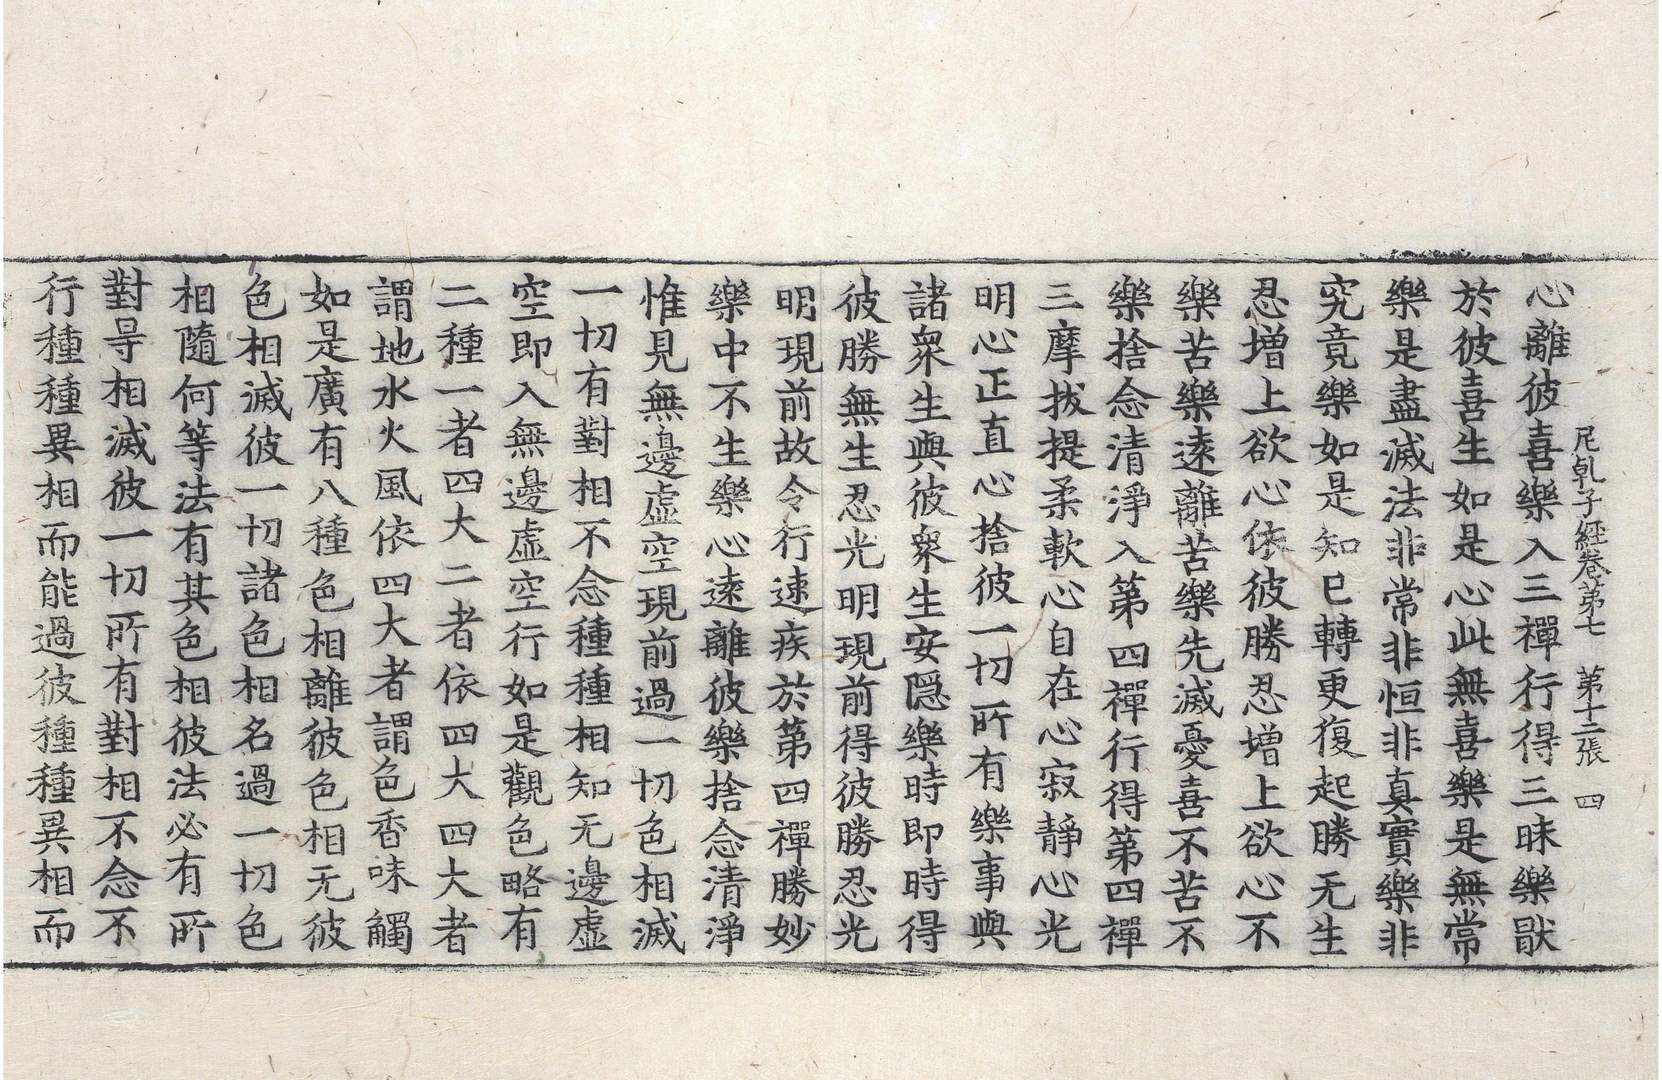 尼乹子經卷第七 第十二張 四
心離彼喜樂入三禪行得三昧樂猒
於彼喜生如是心此無喜樂是無常
樂是盡滅法非常非恒非真實樂非
究竟樂如是知已轉更復起勝无生
忍增上欲心依彼勝忍增上欲心不
樂苦樂遠離苦樂先滅憂喜不苦不
樂捨念清淨入第四禪行得第四禪
三摩拔提柔軟心自在心寂靜心光
明心正直心捨彼一切所有樂事與
諸衆生與彼衆生安隱樂時即時得
彼勝無生忍光明現前得彼勝忍光
明現前故令行速疾於第四禪勝妙
樂中不生樂心遠離彼樂捨念清淨
惟見無邊虛空現前過一切色相滅
一切有對相不念種種相知无邊虛
空即入無邊虛空行如是觀色略有
二種一者四大二者依四大四大者
謂地水火風依四大者謂色香味觸
如是廣有八種色相離彼色相无彼
色相滅彼一切諸色相名過一切色
相隨何等法有其色相彼法必有所
對㝵相滅彼一切所有對相不念不
行種種異相而能過彼種種異相而